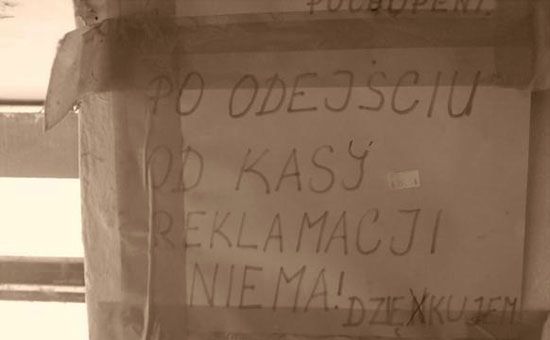 PO ODEJŚCIU
OD KASY
REKLAMACJI
NIEMA!
DZIĘKUJEM